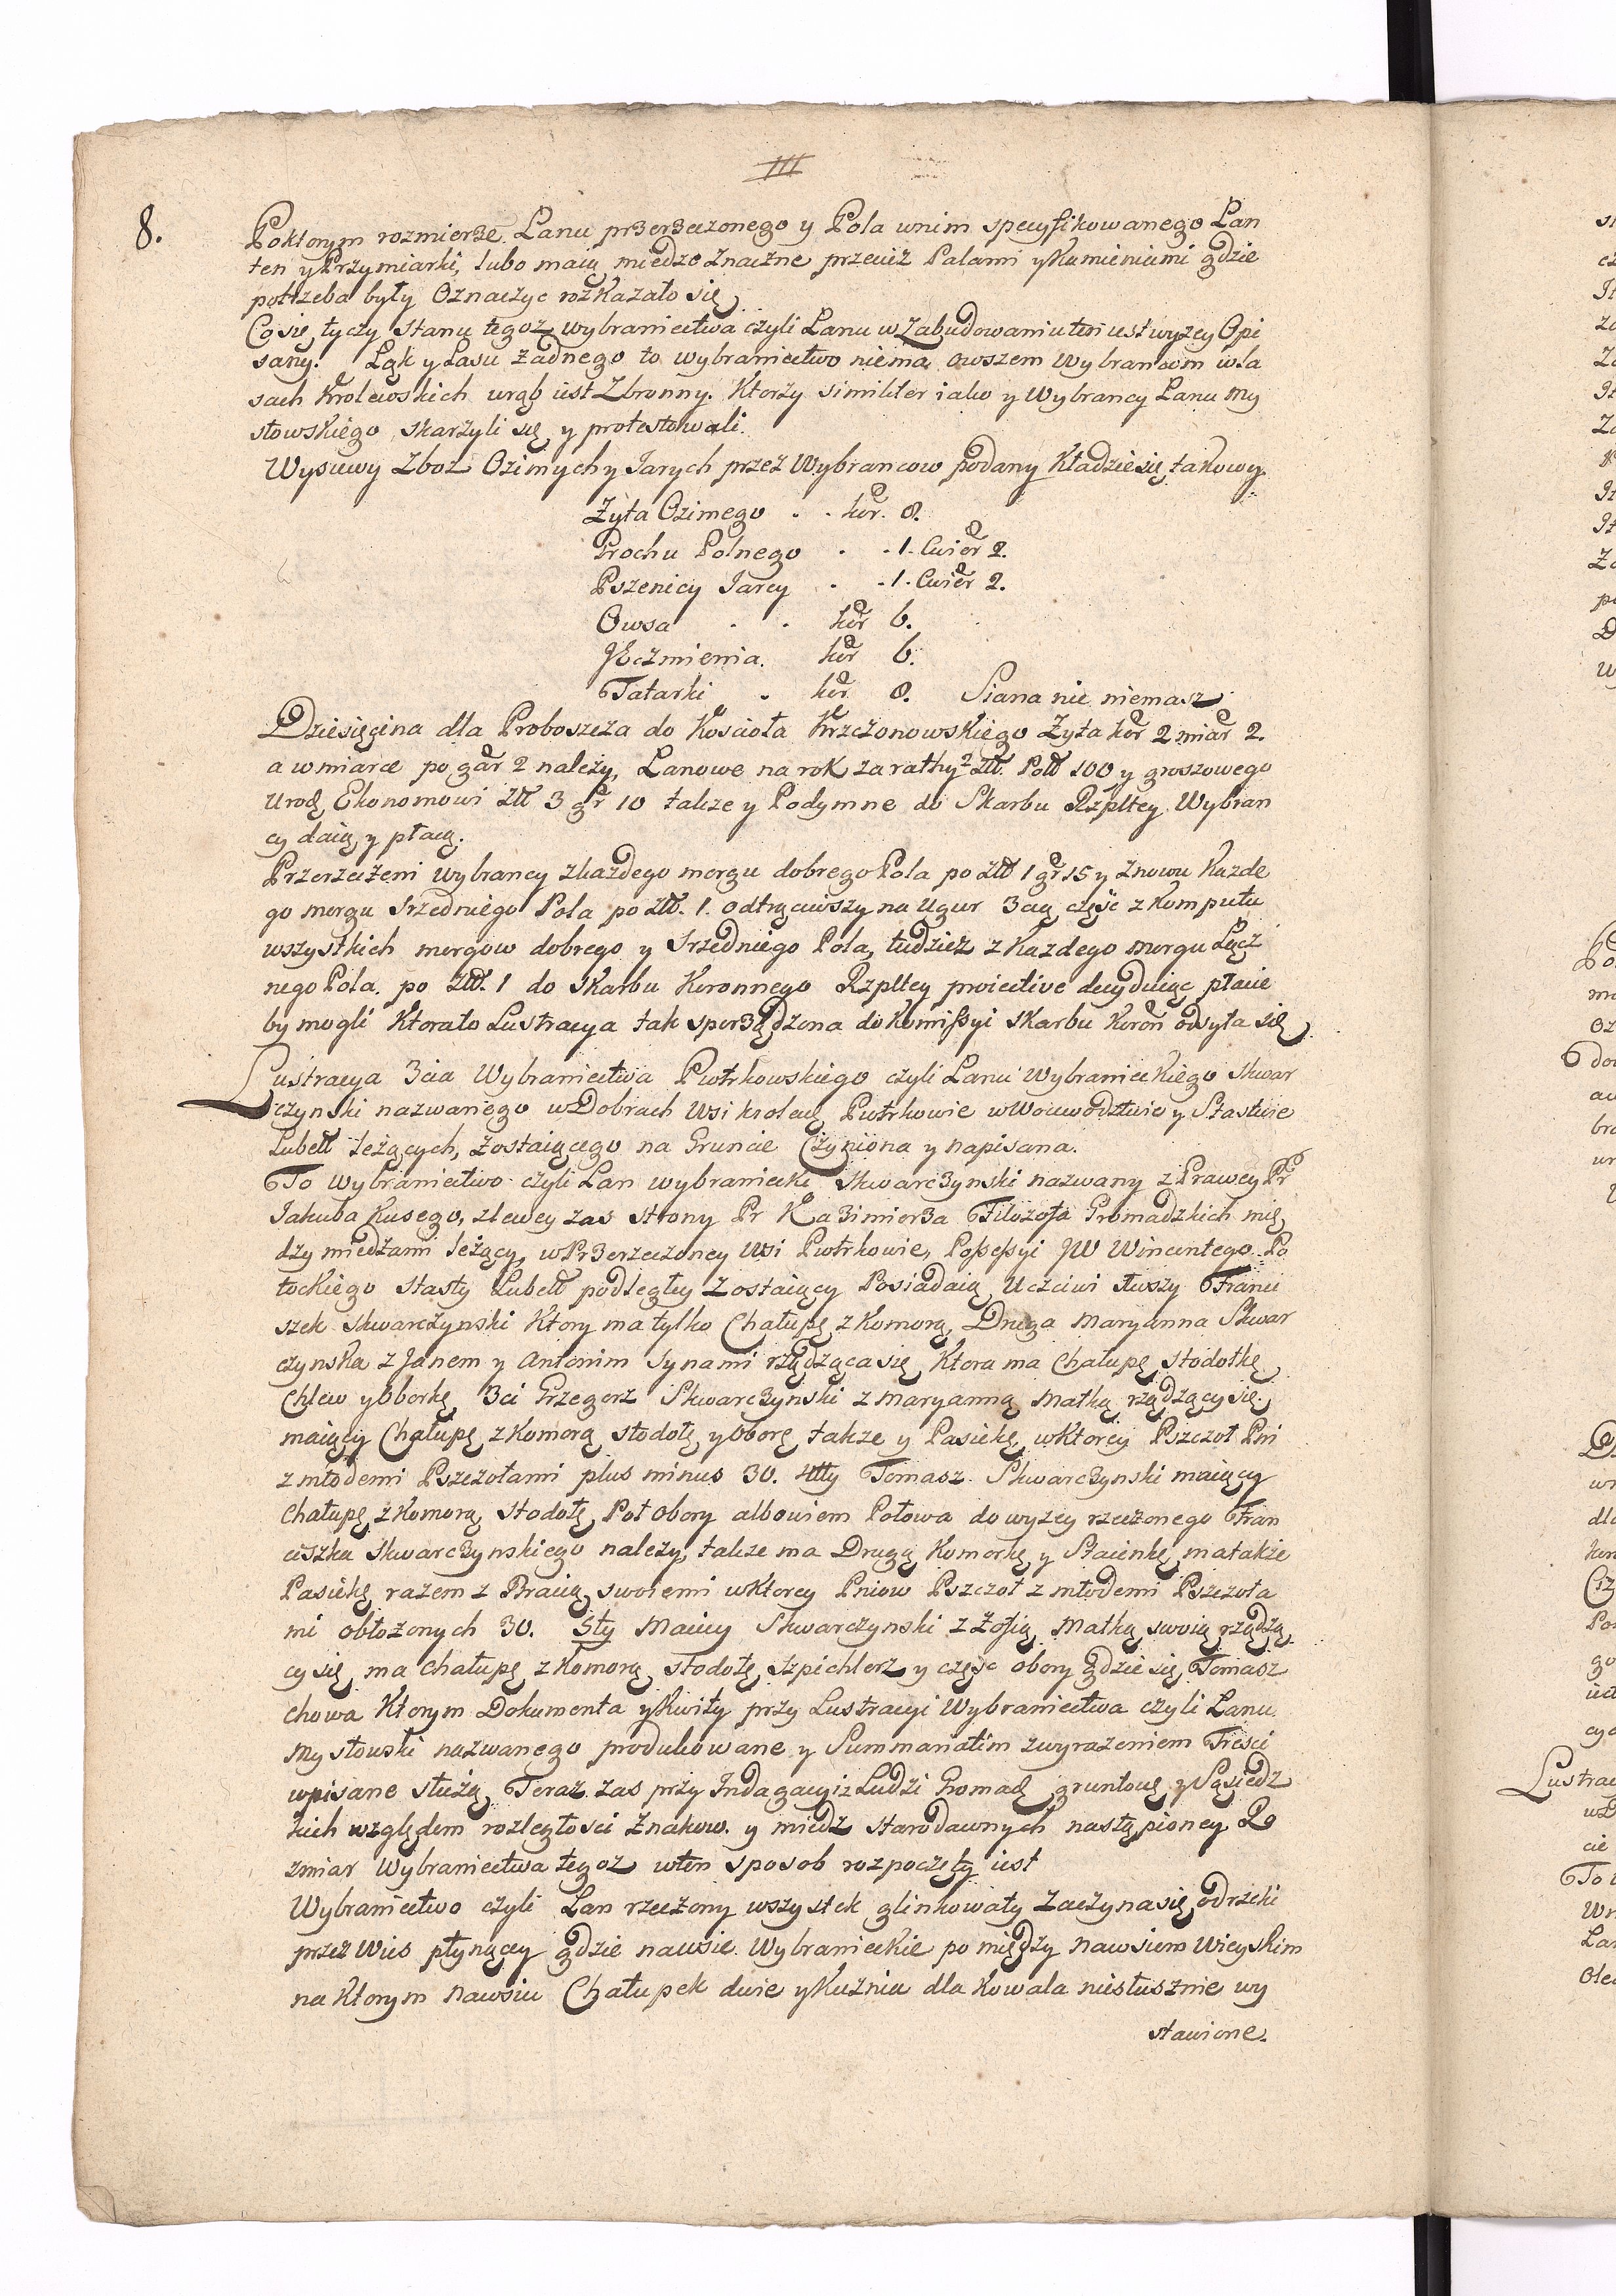 III
8.
Poktorym rozmierze Łanu przerzeczonego y Pola wnim specyfikowanego Łan
ten y Przymiarki, lubo maią miedze znaczne przecież Palami y Kamieniami gdzie
potrzeba były Oznaczyc rozkazało się.
Co się tyczy stanu tegoz wybraniectwa czyli Łanu w Zabudowaniu ten iest wyzey Opi
sany. Łąk y Lasu żadnego to wybraniectwo niema, owszem Wybrancom w La
sach Krolewskich wrąb iest Zbronny. Ktorzy similiter iako y Wybrancy Łanu My
słowskiego skarżyli się y protestowali.
Wysiewy Zboz Ozimych y Jarych przez Wybrancow podany Kładzie się takowy
Żyta Ozimego . . kor. 8.
Grochu Polnego . . 1. Cwier 2.
Pszenicy Jarey . . 1. Cwier 2.
Owsa . . kor 6.
Jęczmienia. kor 6.
Tatarki . kor. 8. Siana nic niemasz
Dziesięcina dla Proboszcza do Kościoła Krzczonowskiego Żyta kor 2 miar 2.
a w miarce po gar 2 należy, Łanowe na rok za rathy 2 Złł. Poll 100 y groszowego
Urod Ekonomowi Złł 3 gr 10 takze y Podymne do Skarbu Rzpltey Wybran
cy daią y płacą.
Przerzeczeni wybrancy z każdego morgu dobrego Pola po Złł 1 gr 15 y znowu Kazde
go morgu srzedniego Pola po Złł. 1. odtrąciwszy na Ugur 3cią część z Komputu
wszystkich morgow dobrego y Srzedniego Pola, tudzież z Kazdego morgu Łącz
nego Pola. po Złł. 1 do Skarbu Koronnego Rzpltey proiective decyduiąc płacic
by mogli Ktorato Lustracya tak sporządzona do Komissyi Skarbu Koron odsyła się
Lustracya 3cia Wybraniectwa Piotrkowskiego czyli Łanu Wybranieckiego Skwar
czynski nazwanego w Dobrach Wsi krolew Piotrkowie w Woiewodztwie y Stastwie
Lubell leżących, zostaiącego na Gruncie Czyniona y napisana.
To wybraniectwo czyli Łan wybraniecki Skwarczynski nazwany z Prawey Pr
Jakuba Kusego, z lewey zas strony Pr Kazimierza Filozofa Gromadzkich mię
dzy miedzami leżący, w Przerzeczoney Wsi Piotrkowie, Possessyi JW Wincentego Po
tockiego Stasty Lubell podległey zostaiący Posiadaią Uczciwi tuszy Franci
szek Skwarczynski Ktory ma tylko Chałupę z Komorą, Druga Maryanna Skwar
czynska z Janem y Antonim Synami rządząca się, Ktora ma Chałupę, stodołkę,
Chlew y Oborkę, 3ci Grzegorz Skwarczynski z Maryanną Matką rządzący się,
maiący Chałupę z Komorą stodołę y Oborę, takze y Pasiekę, w Ktorey Pszczoł Pni
z młodemi Pszczołami plus minus 30. 4ty Tomasz Skwarczynski maiący
Chałupę z Komorą, Stodołę, Poł obory albowiem Połowa do wyzey rzeczonego Fran
ciszka Skwarczynskiego nalezy, takze ma Drugą Komorkę, y Staienkę, ma takze
Pasiekę razem z Bracią swoiemi w Ktorey Pniow Pszczoł z młodemi Pszczoła
mi obłożonych 30. 5ty Maciey Skwarczynski z Zofią, Matką swoią rządzą
cy się, ma Chałupę z Komorą, stodołę, szpichlerz y częsc obory gdzie się Tomasz
chowa Ktorym Dokumenta y Kwity przy Lustracyi Wybraniectwa czyli Łanu
Mysłowski nazwanego produkowane y Summariatim z wyrażeniem Tresci
wpisane służą, Teraz zas przy Indagacyi z Ludzi Gromad gruntowę y Sąsiedz
kich względem rozległosci Znakow. y miedz starodawnych nastąpioney Ro
zmiar Wybraniectwa tegoz wten sposob rozpoczęty iest
Wybraniectwo czyli Łan rzeczony wszystek glinkowaty zaczyna się od rzeki
przez Wies płynącey gdzie nawsie Wybranieckie pomiędzy nawsiem Wieyskim
na Ktorym nawsiu Chałupek dwie y Kuźnia dla Kowala niesłusznie wy
stawione.